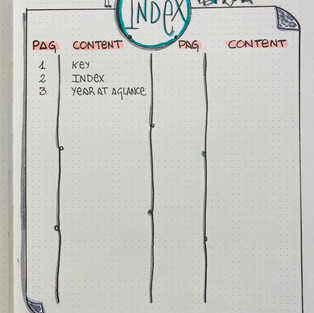 INDEX
PAG CONTENT PAG CONTENT
1 KEY
2 INDEX
3 YEAR AT AGLANCE